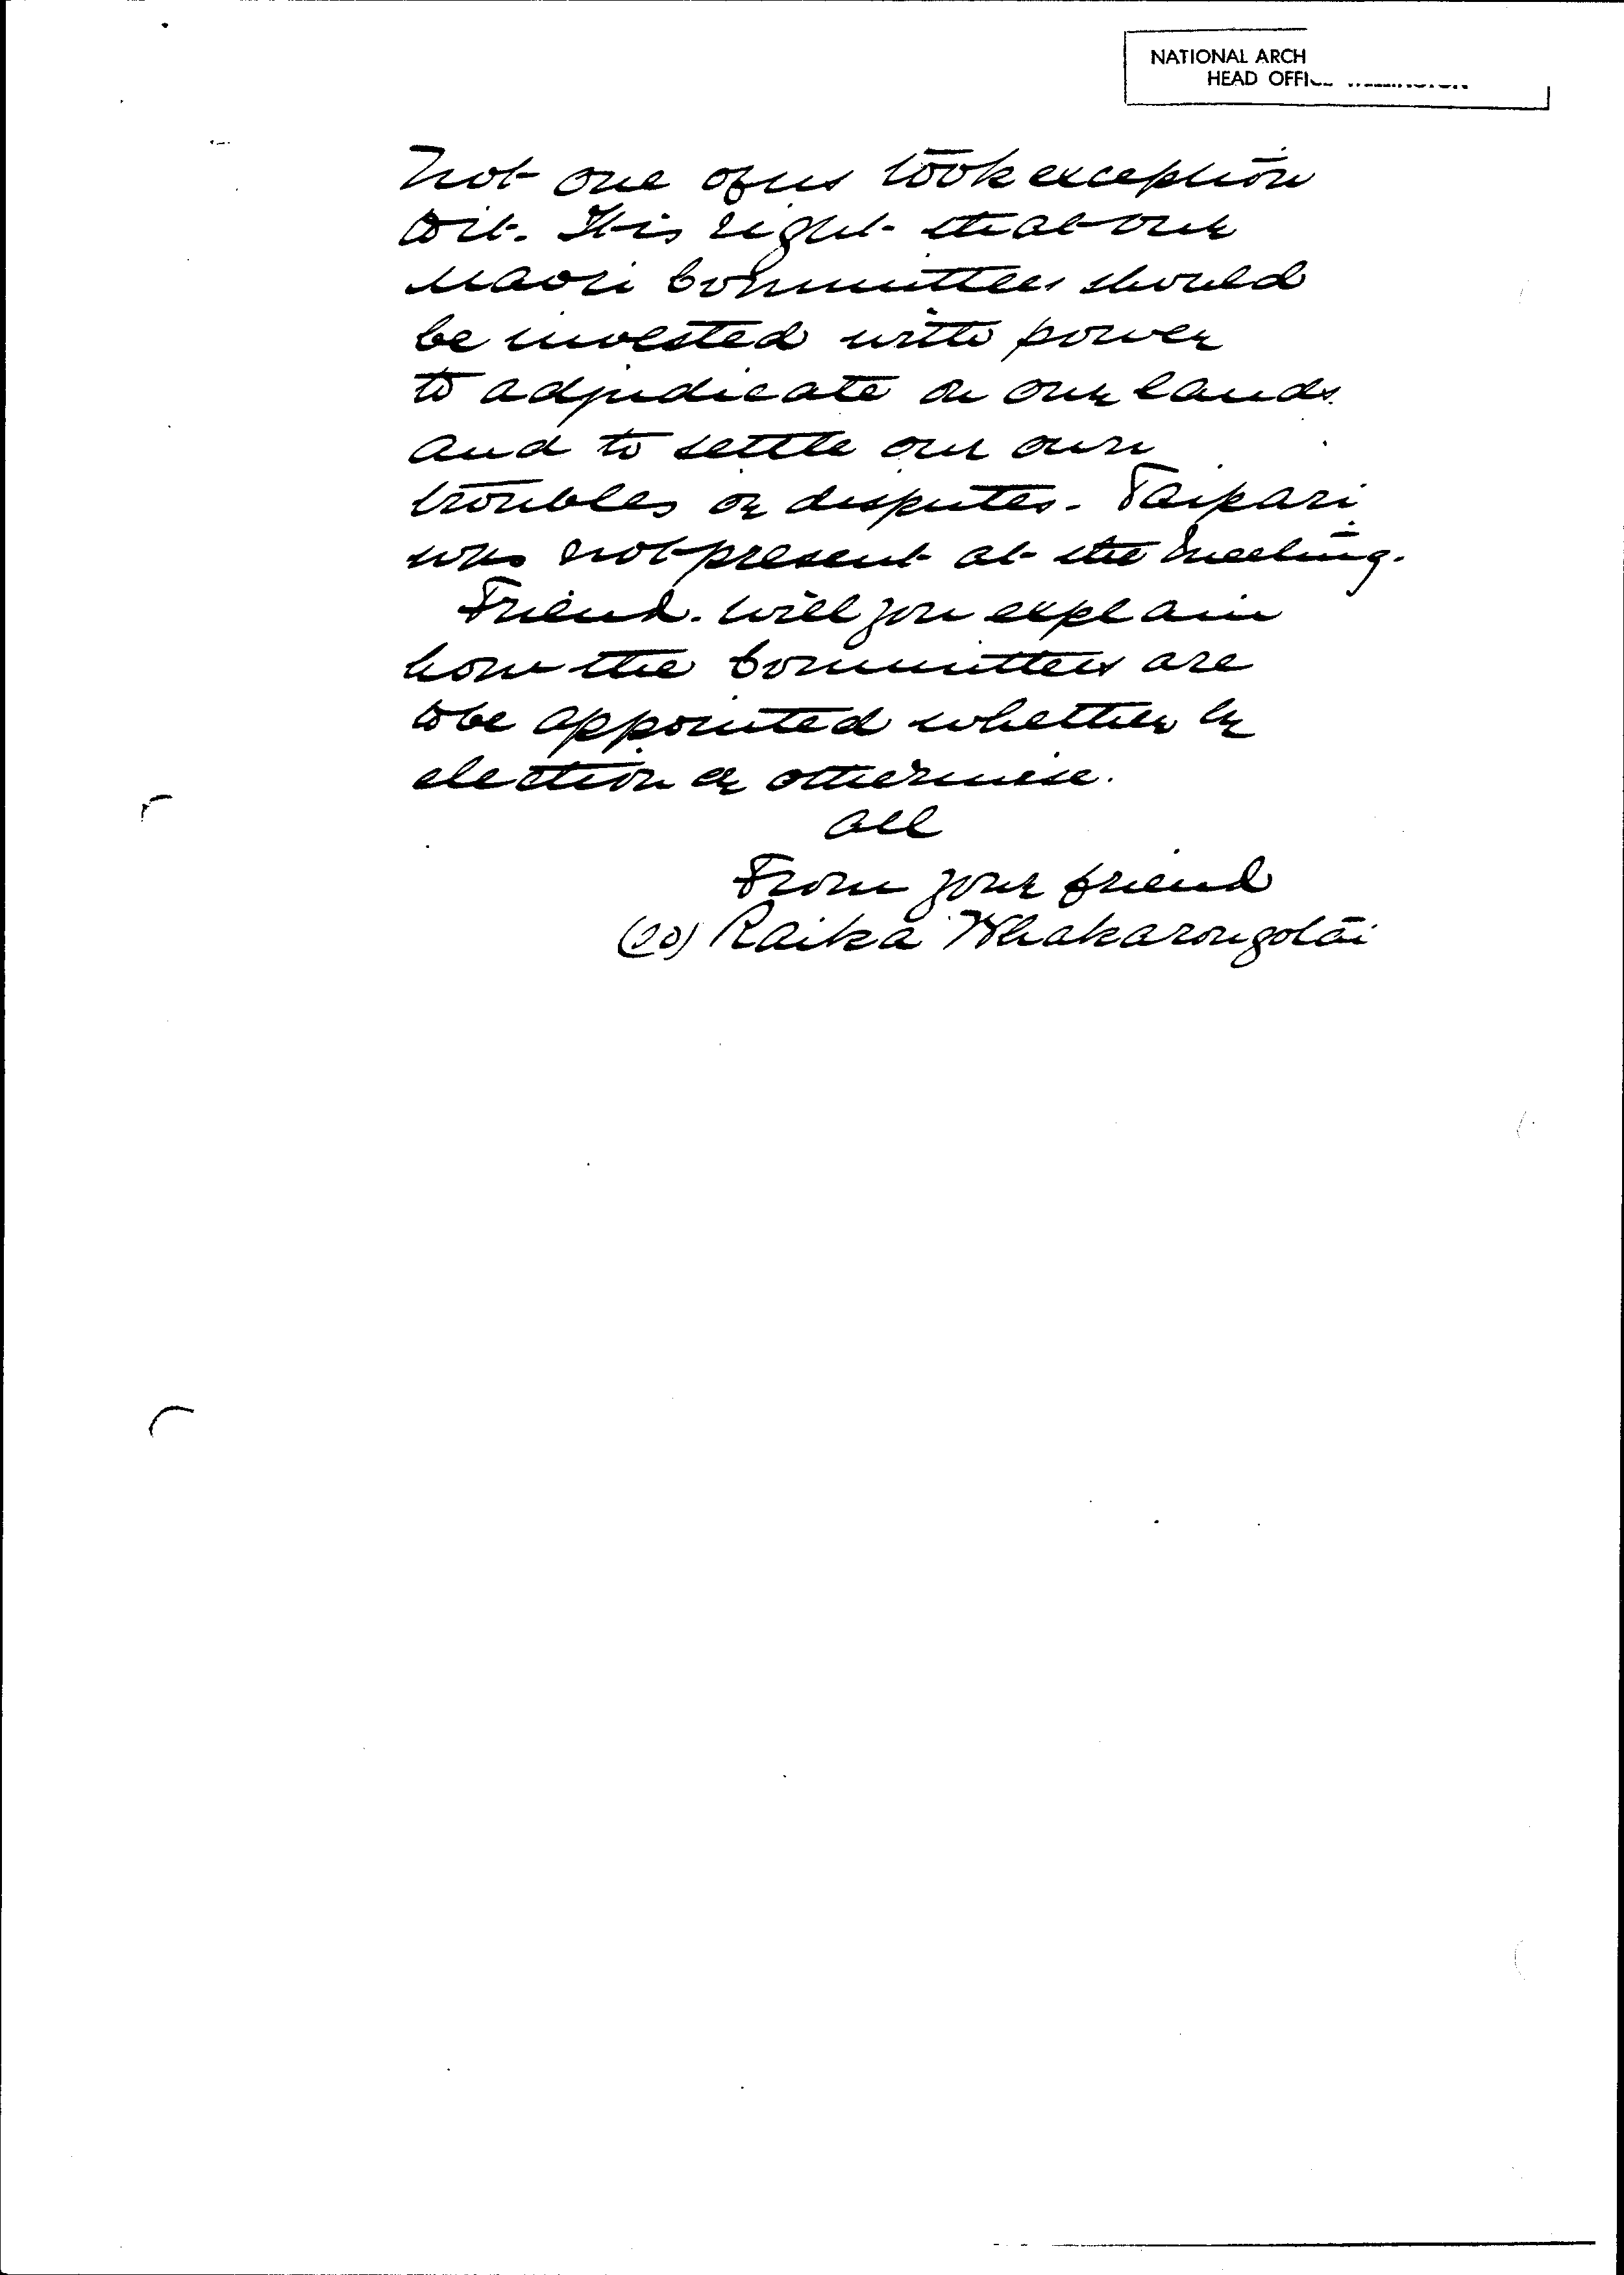 NATIONAL ARCH
HEAD OFFICE WELLINGTON
Not one of us took exception
to it. It is right that our
Maori Committees should
be invested with power
to adjudicate on our lands
and to settle our own
troubles or disputes. Taipari
was not present at the meeting.
Friend. Will you explain
how the Committees are
to be appointed whether by
election or otherwise.
All
From your friend
Raika Whakarongotai